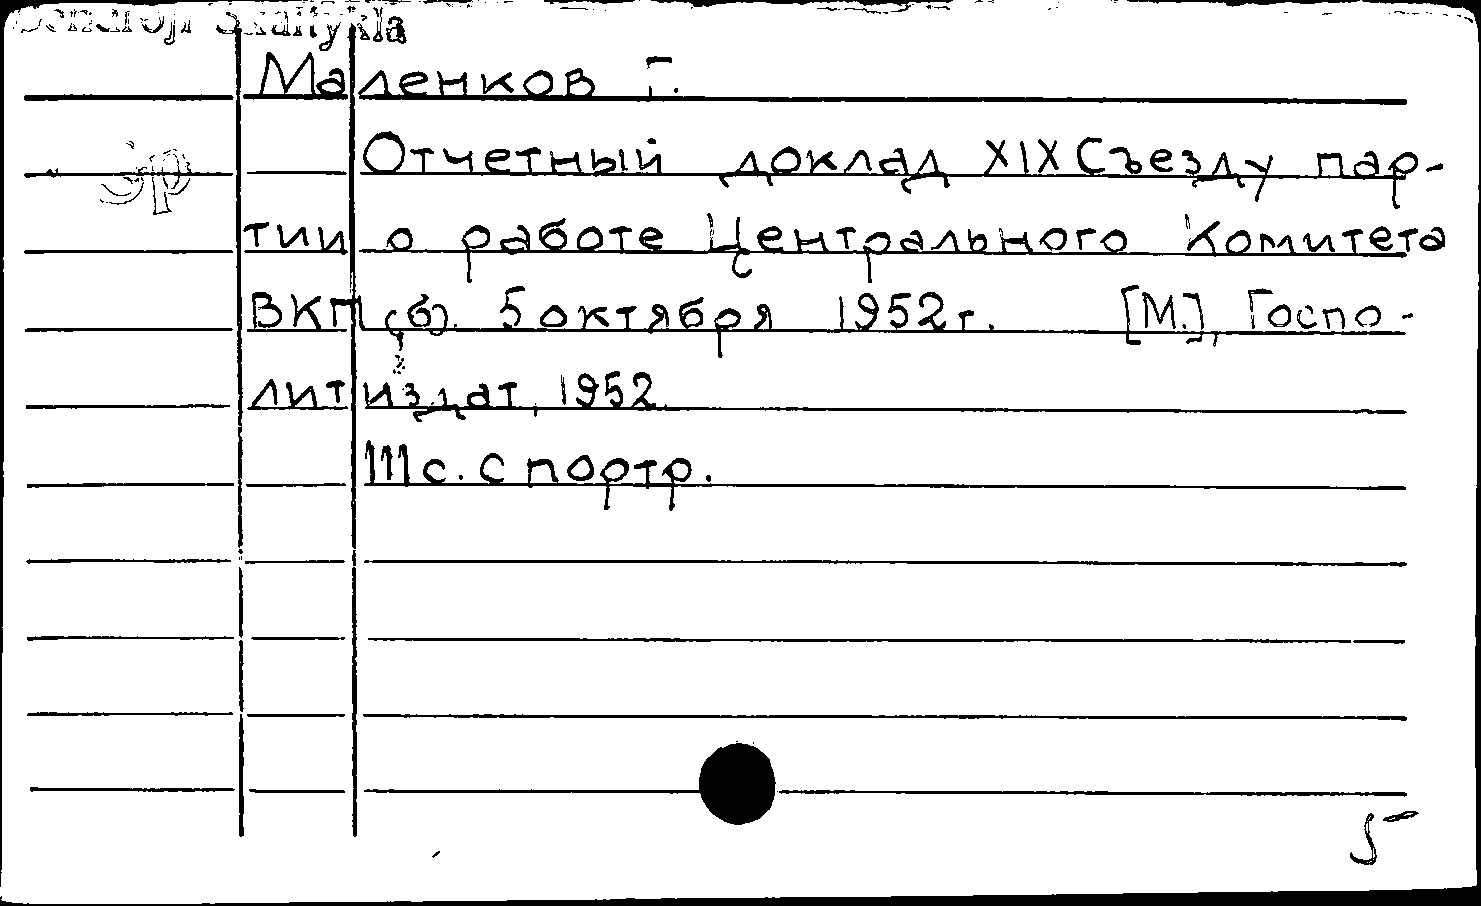 Bendroji skaitykla
Маленков Г.
Отчетный доклад XIX Съезду пар-
тии о работе Центрального Комитета
ВКП(б). 5 октября 1952 г. [М.], Госпо-
литиздат, 1952.
111 с. с портр.
5